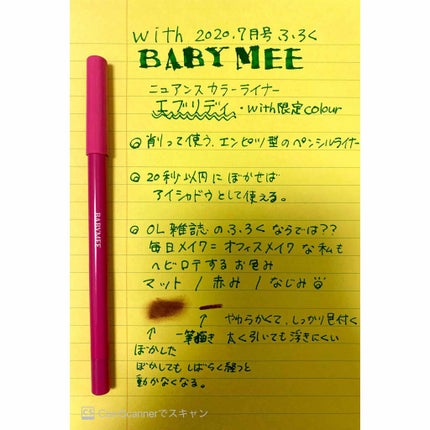 with 2020.7月号 ふろく
BABY MEE
ニュアンスカラーライナー
エブリディ・with限定colour
削って使う、エンピツ型のペンシルライナー
20秒以内にぼかせば
アイシャドウとして使える。
OL雑誌のふろくならでは??
毎日メイク=オフィスメイクな私も
ヘビロテするお色み
マット / 赤み / なじみ
↑ やわらかくて、しっかり色付く
↑ 一筆描き 太く引いても浮きにくい
ぼかした
ぼかしてもしばらく経つと
動かなくなる。
BABYMEE
CS CamScannerでスキャン